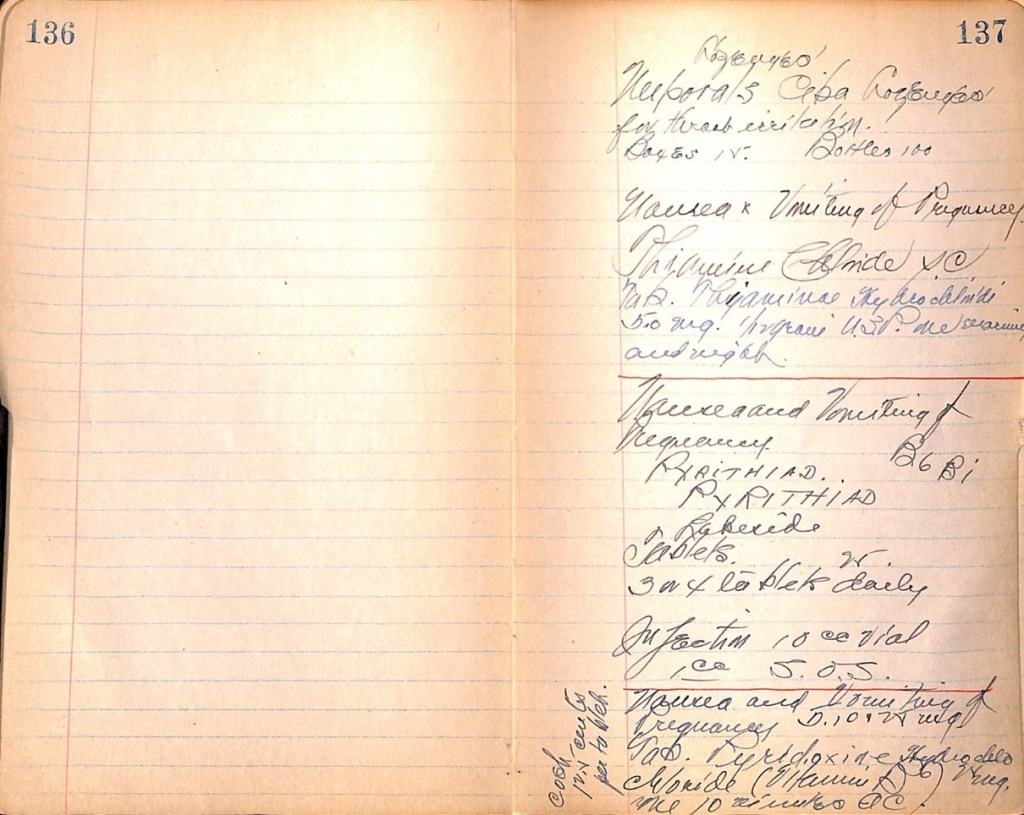 136
137
Lozenges
Nuporals Ciba Lozenges
for throat irritation.
Boxes 15. Bottles 100
Nausea & Vomiting of Pregnancy
Thiamine Chloride
Tab. Thiaminae Hydrochloride
50 mg. U.S.P. one morning
and night.
Nausea and Vomiting of
Pregnancy B6 B1
PYRITHIAD..
PYRITHIAD
Lakeside
Tablets.
3 or 4 tablets daily
Injection 10 cc vial
1cc S.O.S.
Nausea and Vomiting of
Pregnancy
Tab. Pyridoxine Hydrochlo
chloride (Vitamin B6) mg.
one 10 minutes AC.
Cost
cents
per tablet.